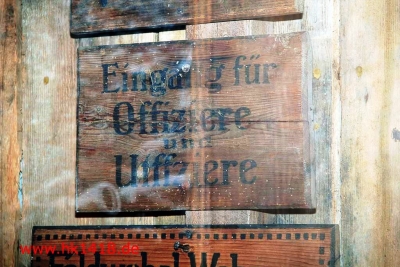 Eingang für
Offiziere
und
Uffiziere
www.hk1418.de
Feldwebel